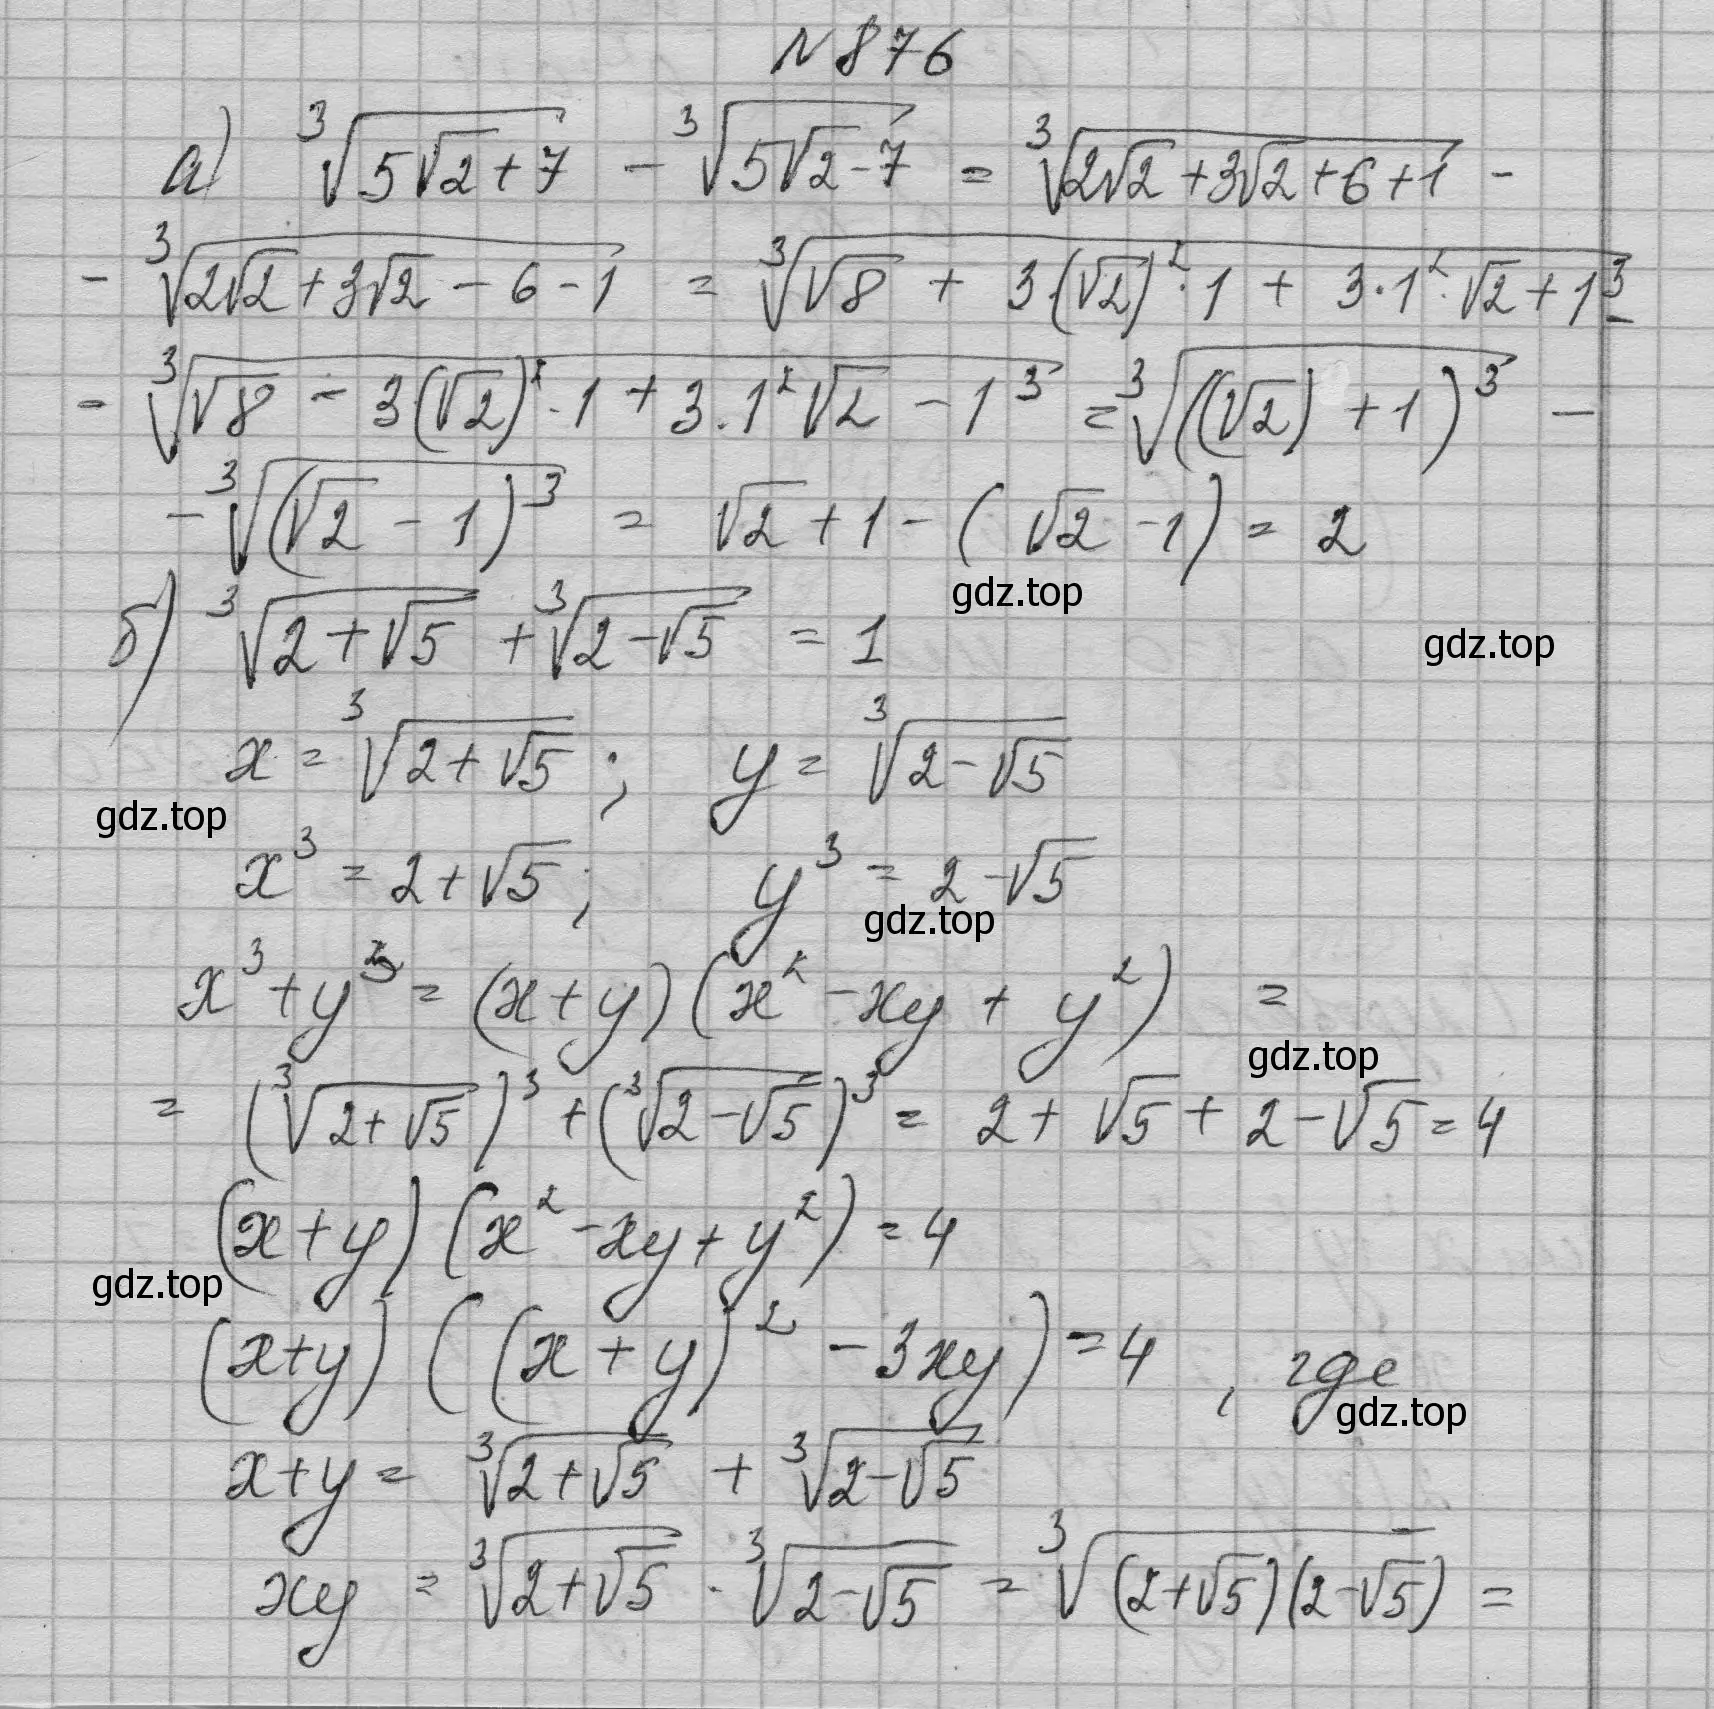 N 876
а) ∛(5√2+7) - ∛(5√2-7) = ∛(2√2+3√2+6+1) -
- ∛(2√2+3√2-6-1) = ∛(√8 + 3·(√2)²·1 + 3·1²·√2+1³) -
- ∛(√8 - 3(√2)²·1+3·1²√2 - 1³) = ∛(((√2)+1)³) -
- ∛((√2-1)³) = √2+1-(√2-1) = 2
gdz.top
б) ∛(2+√5) + ∛(2-√5) = 1
gdz.top
x = ∛(2+√5); y = ∛(2-√5)
gdz.top
x³ = 2+√5; y³ = 2-√5
gdz.top
x³+y³ = (x+y)(x²-xy+y²) =
gdz.top
= (∛(2+√5))³+(∛(2-√5))³ = 2+√5+2-√5=4
(x+y)(x²-xy+y²)=4
gdz.top
(x+y)((x+y)²-3xy)=4, где
gdz.top
x+y = ∛(2+√5) + ∛(2-√5)
xy = ∛(2+√5) · ∛(2-√5) = ∛((2+√5)(2-√5)) =